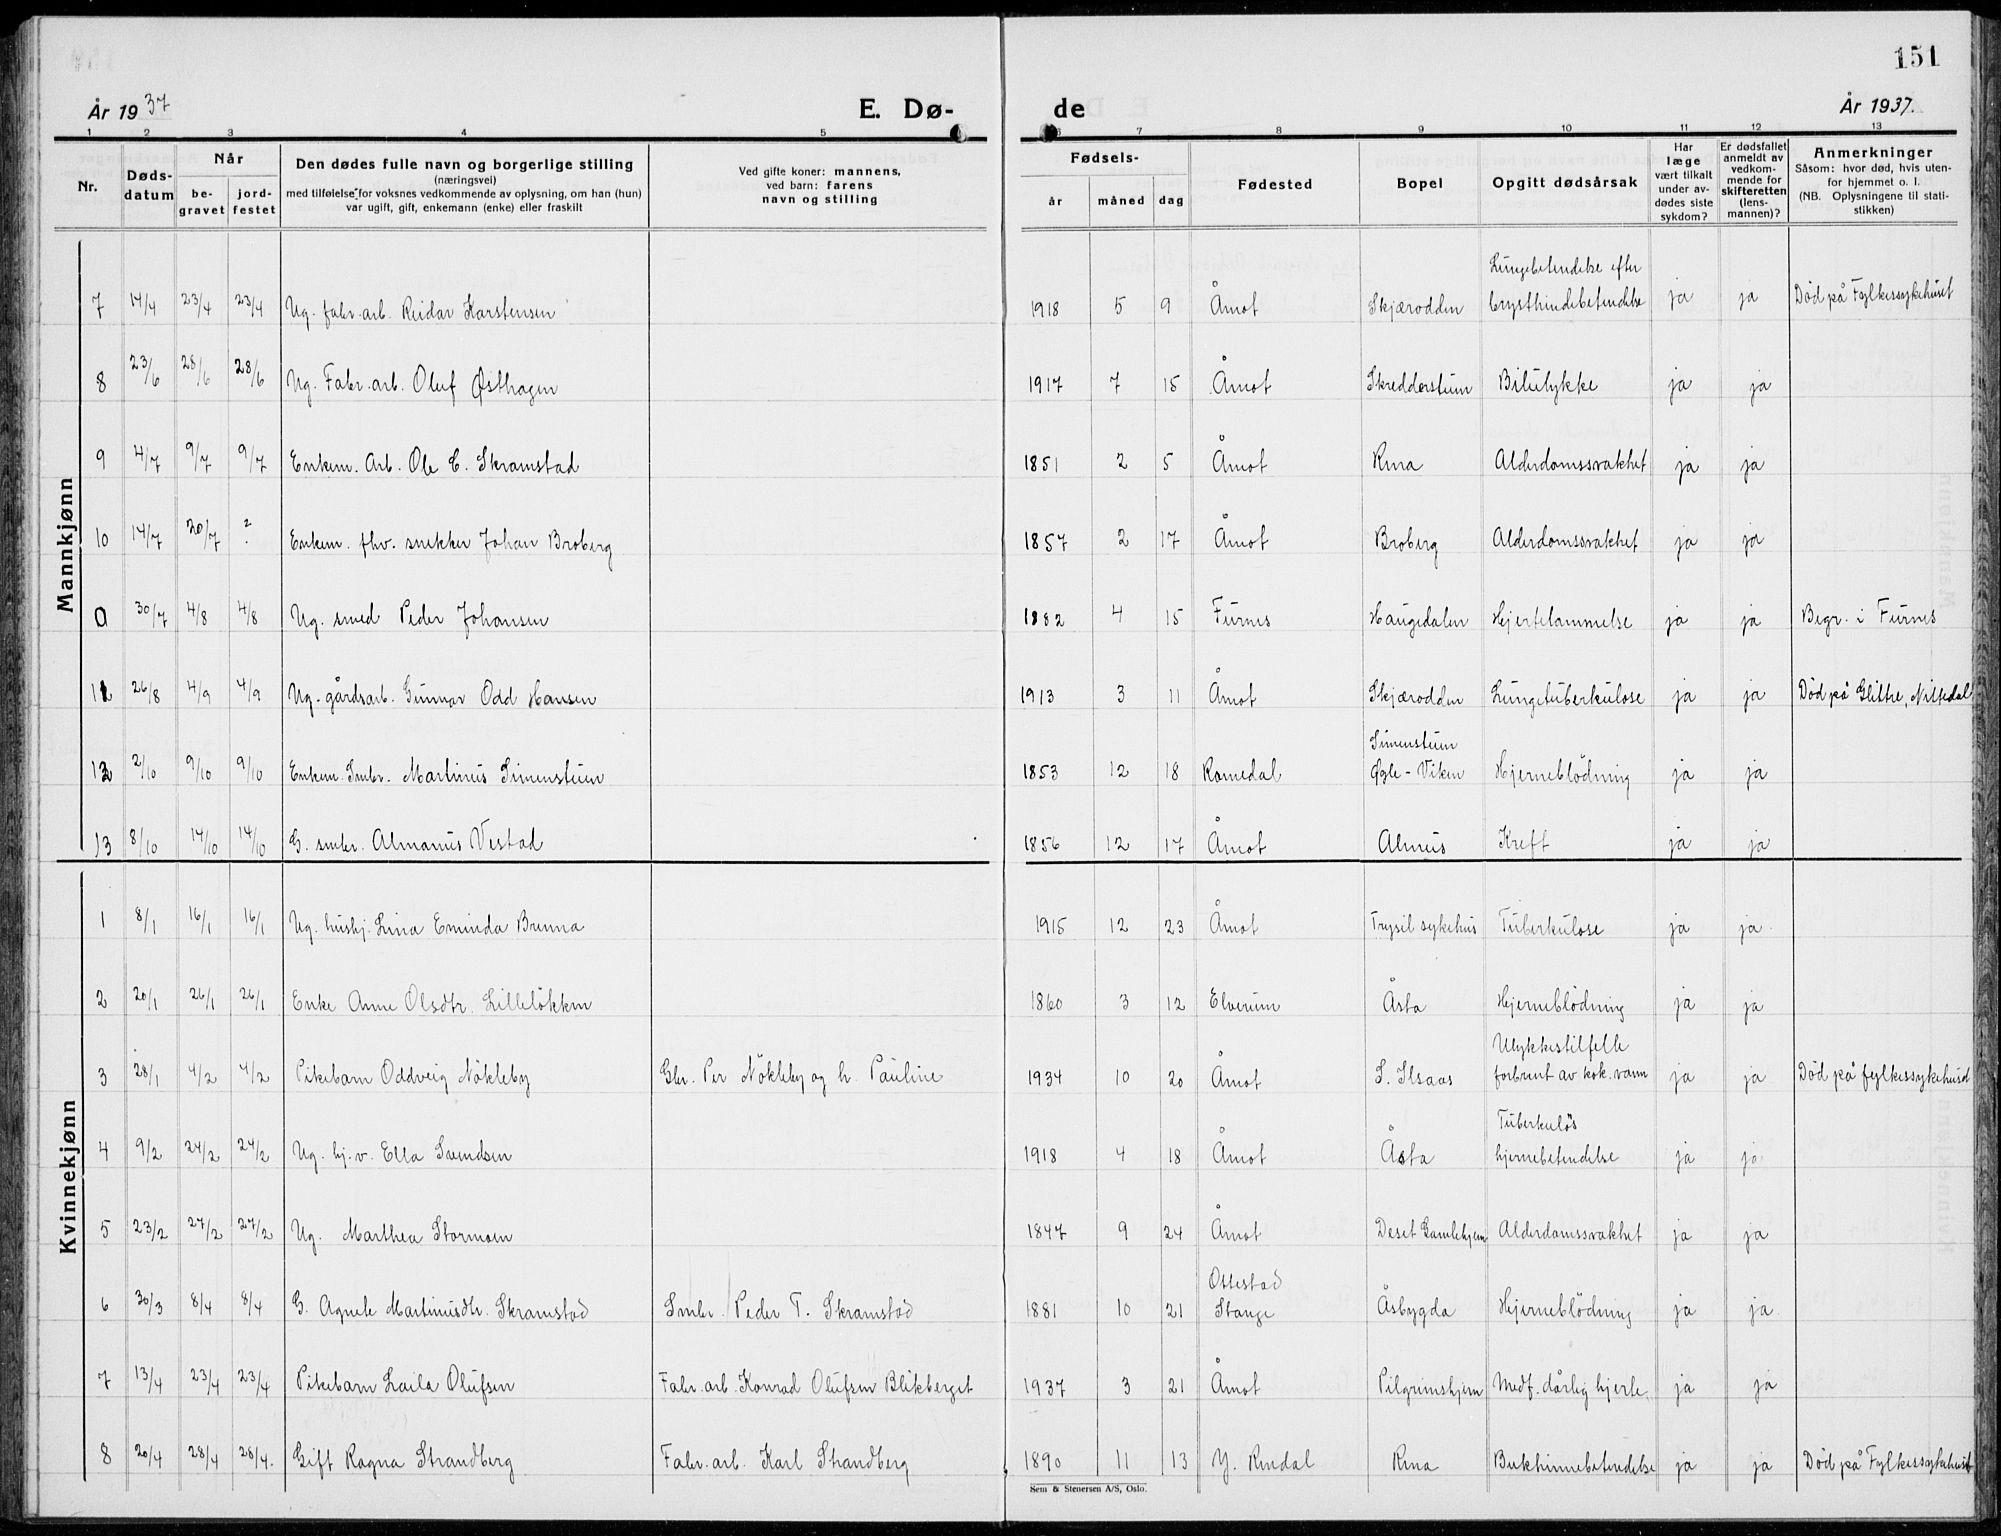 151
År 1937
E. Dø-
de
År 1937.
1 2 3 4 5 6 7 8 9 10 11 12 13
Nr.
Døds-
datum
Når
be-
gravet
jord-
festet
Den dødes fulle navn og borgerlige stilling
(næringsvei)
med tilføielse for voksnes vedkommende av oplysning, om han (hun)
var ugift, gift, enkemann (enke) eller fraskilt
Ved gifte koner: mannens,
ved barn: farens
navn og stilling
Fødsels-
år måned dag
Fødested
Bopel
Opgitt dødsårsak
Har
læge
vært tilkalt
under av-
dødes siste
sykdom?
Er dødsfallet
anmeldt av
vedkom-
mende for
skifteretten
(lens-
mannen)?
Anmerkninger
Såsom: hvor død, hvis uten-
for hjemmet o. l.
(NB. Oplysningene til stati-
stikken)
Mannkjønn
Lungebetendelse efter
7 14/4 23/4 23/4 Ug. fabr. arb. Reidar Karstensen 1918 5 9 Åmot Skjærodden brysthindebetendelse ja ja Død på Fylkessykehuset
8 23/6 28/6 28/6 Ug. Fabr. arb. Oluf Østhagen 1917 7 15 Åmot Skredderstuen Bilulykke ja ja
9 4/7 9/7 9/7 Enkem. Arb. Ole C. Skramstad 1851 2 5 Åmot Rena Alderdomssvakhet ja ja
10 14/7 20/7 ? Enkem. fhv. snekker Johan Broberg 1857 2 17 Åmot Broberg Alderdomssvakhet ja ja
0 30/7 4/8 4/8 Ug. smed Peder Johansen 1882 4 15 Furnes Haugedalen Hjertelammelse ja ja Begr. i Furnes
11 26/8 4/9 4/9 Ug. gårdsarb. Gunnar Odd Hansen 1913 3 11 Åmot Skjærodden Lungetuberkulose ja ja Død på Glittre, Nittedal
Simenstuen
12 2/10 9/10 9/10 Enkem. Smbr. Martinus Simenstuen 1853 12 18 Romedal Øgle-Viken Hjerneblödning ja ja
13 8/10 14/10 14/10 G. smbr. Almanus Vestad 1856 12 17 Åmot Alenus Kreft ja ja
Kvinnekjønn
1 8/1 16/1 16/1 Ug. hushj. Lina Eminda Brenna 1915 12 23 Åmot Trysil sykehus Tuberkulose ja ja.
2 20/1 26/1 26/1 Enke Anne Olsdtr. Lilleløkken 1860 3 12 Elverum Åsta Hjerneblödning ja ja
Ulykkestilfelle
3 28/1 4/2 4/2 Pikebarn Oddveig Nökleby Gbr. Per Nökleby og h. Pauline 1934 10 20 Åmot S. Ilsaas forbrent av kok. vann ja ja Død på fylkessykehuset
Tuberkuløs
4 9/2 24/2 24/2 Ug. hj.v. Ella Svendsen 1918 4 18 Åmot Åsta hjernebetendelse ja ja
5 23/2 27/2 27/2 Ug. Marthea Stormoen 1847 9 24 Åmot Deset Gamlehjem Alderdomssvakhet ja ja
Ottestad
6 30/3 8/4 8/4 G. Agnete Martinusdtr. Skramstad Smbr. Peder T. Skramstad 1881 10 21 Stange Åsbygda Hjerneblödning ja ja.
7 13/4 23/4 23/4 Pikebarn Laila Olufsen Fabr. arb. Konrad Olufsen Blikberget 1937 3 21 Åmot Pilgrimshjem Medf. dårlig hjerte. ja ja
8 20/4 28/4 28/4. Gift Ragna Strandberg Fabr. arb. Karl Strandberg 1890 11 13 Y. Rendal Rena Bukhinnebetendelse ja ja Død på Fylkessykehuset
Sem & Stenersen A/S, Oslo.